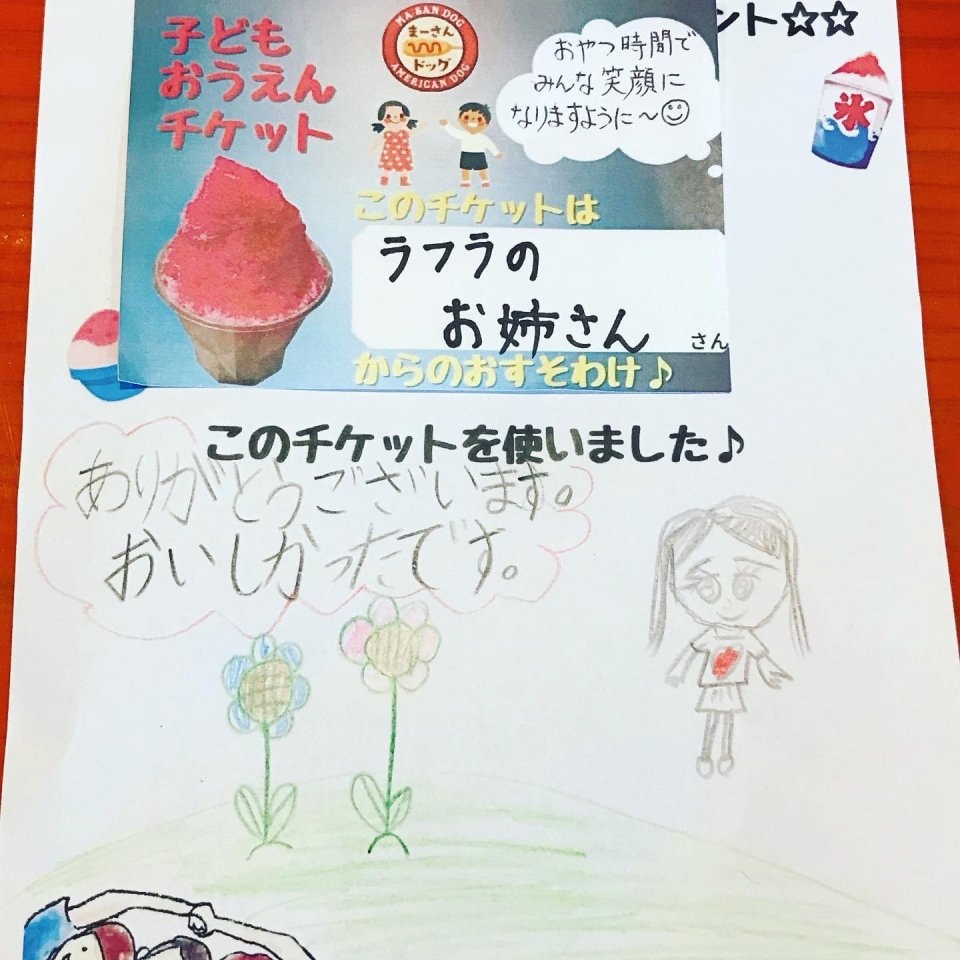 ント☆☆
子ども
おうえん
チケット
MA SAN DOG
まーさん
ドッグ
AMERICAN DOG
おやつ時間で
みんな笑顔に
なりますように〜☺
氷
このチケットは
ラフラの
お姉さん
さん
からのおすそわけ♪
このチケットを使いました♪
ありがとうございます。
おいしかったです。